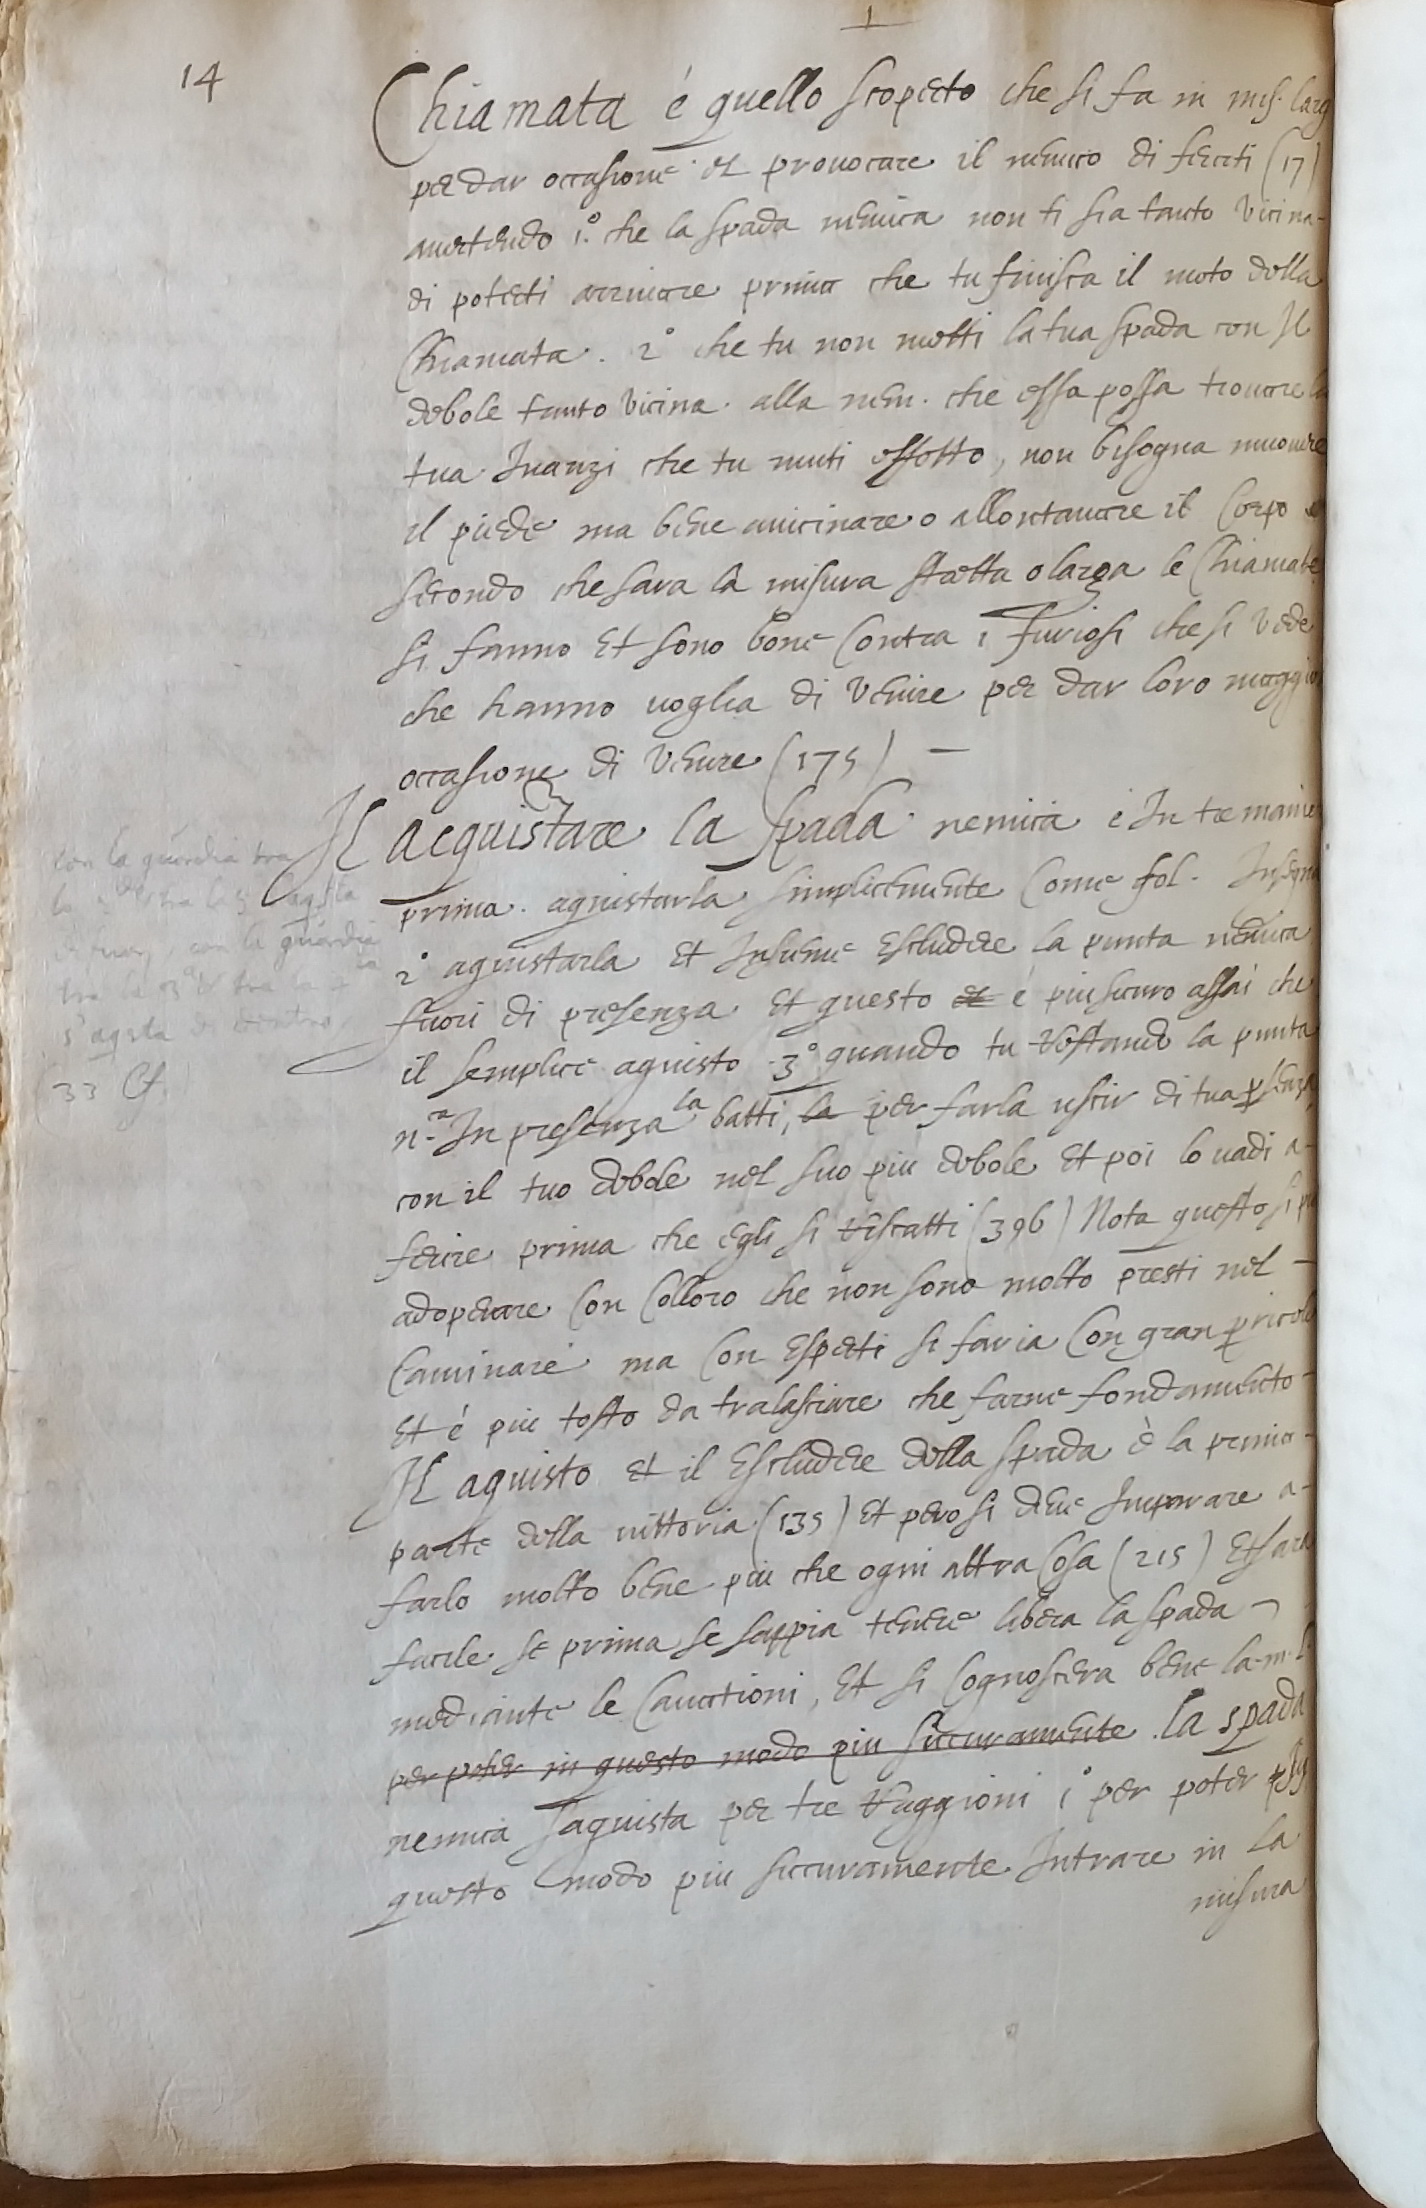 14
Chiamata é quello scoperto che si fa in mis. larg
per dar occasione et provocare il nemico di ferirti (17)
avertendo 1.º che la spada nemica non ti sia tanto vicina
di poterti arrivare prima che tu finisca il moto della
Chiamata. 2º che tu non metti la tua spada con Il
debole tanto vicina alla nem. che essa possa trovare la
tua Inanzi che tu muti effetto, non bisogna muovere
il piede ma bene avicinare o allontanare il Corpo
secondo che sara la misura stretta o larga le Chiamate
si fanno Et sono bone Contra i Furiosi che si vede
che hanno voglia di venire per dar loro maggior
occasione di venire (175) —
Il acquistare la spada nemica é In tre manier
prima aquistarla simplicemente Come fol. Insegna
2º aquistarla Et Insieme Escludere la punta nemica
fuori di presenza Et questo et é piu sicuro assai che
il semplice aquisto 3º quando tu restando la punta
n.ª In presenza la batti, la per farla uscir di tua psenza
con il tuo debole nel suo piu debole Et poi lo vadi a-
ferire prima che egli si riscatti (396) Nota questo si può
adoperare Con Colloro che non sono molto presti nel —
Caminare ma Con Esperti si faria Con gran pricolo
Et é piu tosto da tralasciare che farne fondamento-
Il aquisto Et il Escludere della spada è la prima -
parte della vittoria (135) Et pero si deve Imparare a-
farlo molto bene piu che ogni altra Cosa (215) Et sara
facile se prima se sappia tenere libera la spada -
mediante le Cavationi, Et si Cognoscera bene la m. l.
per poter in questo modo piu sicuramente. la spada
nemica s'aquista per tre raggioni 1º per poter
questo modo piu siccuramente Intrare in la
misura
con la guardia tra
s'aqsta di dentro
33 Cf.